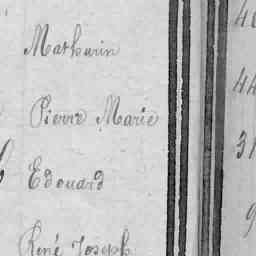 Mathurin
Pierre Marie
Edouard
René Joseph